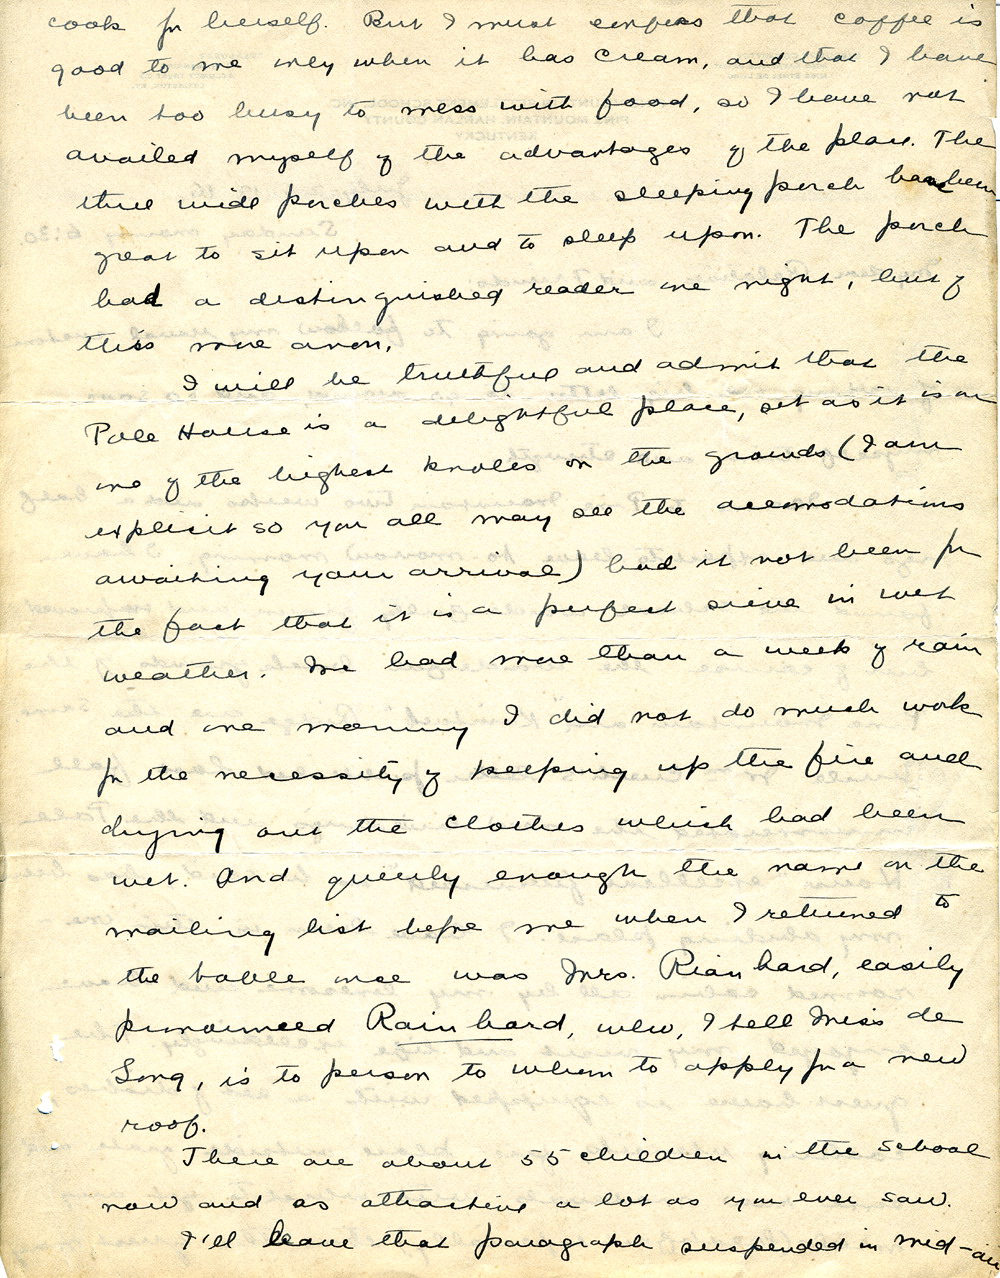 cook for herself. But I must confess that coffee is
good to me only when it has cream, and that I have
been too busy to mess with food, so I have not
availed myself of the advantages of the place. The
three wide porches with the sleeping porch has been
great to sit upon and to sleep upon. The porch
had a distinguished reader one night, but of
this more anon.
I will be truthful and admit that the
Pole House is a delightful place, set as it is on
one of the highest knolls on the grounds (I am
explicit so you all may see the accomodations
awaiting your arrival) had it not been for
the fact that it is a perfect sieve in wet
weather. We had more than a week of rain
and one morning I did not do much work
for the necessity of keeping up the fire and
drying out the clothes which had been
wet. And queerly enough the name on the
mailing list before me when I returned to
the table once was Mrs. Rianhard, easily
pronounced Rainhard, who, I tell Miss de
Long, is to person to whom to apply for a new
roof.
There are about 55 children in the school
now and as attractive a lot as you ever saw.
I'll leave that paragraph suspended in mid-air